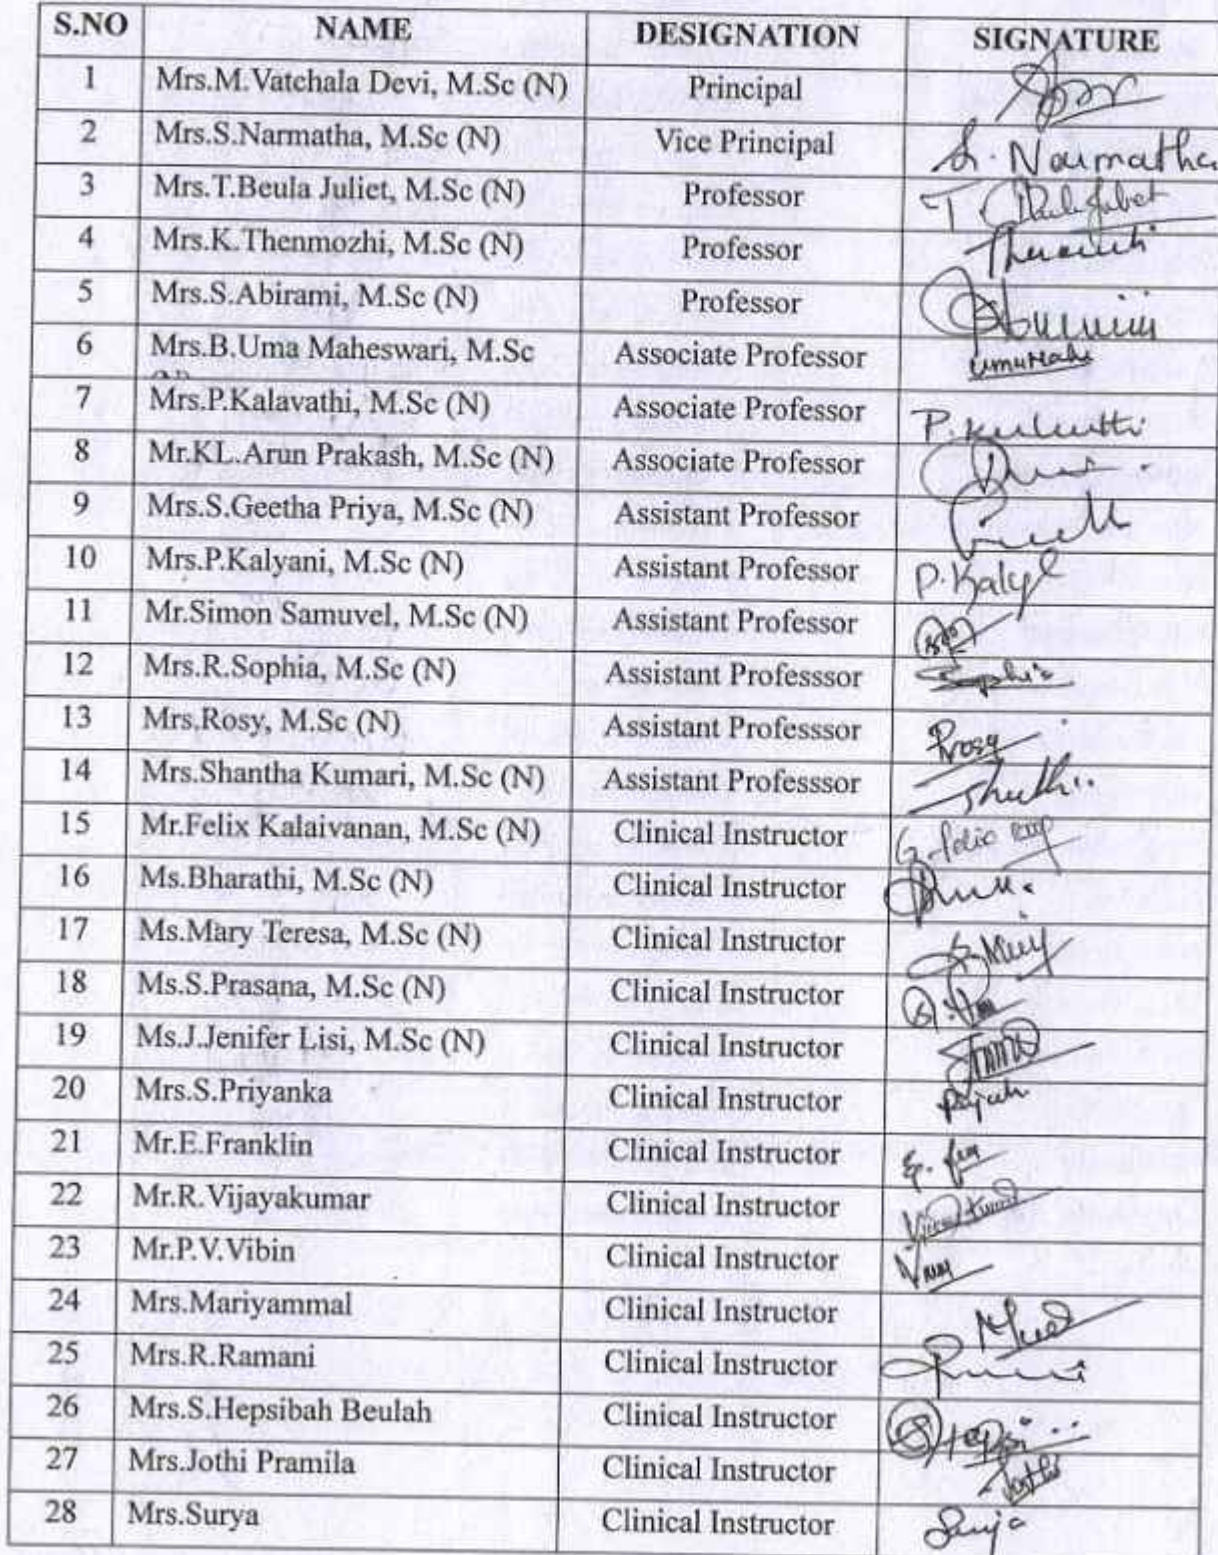 S.NO NAME DESIGNATION SIGNATURE
1 Mrs.M.Vatchala Devi, M.Sc (N) Principal
2 Mrs.S.Narmatha, M.Sc (N) Vice Principal S. Narmatha
3 Mrs.T.Beula Juliet, M.Sc (N) Professor
4 Mrs.K.Thenmozhi, M.Sc (N) Professor
5 Mrs.S.Abirami, M.Sc (N) Professor
6 Mrs.B.Uma Maheswari, M.Sc Associate Professor
7 Mrs.P.Kalavathi, M.Sc (N) Associate Professor
8 Mr.KL.Arun Prakash, M.Sc (N) Associate Professor
9 Mrs.S.Geetha Priya, M.Sc (N) Assistant Professor
10 Mrs.P.Kalyani, M.Sc (N) Assistant Professor
11 Mr.Simon Samuvel, M.Sc (N) Assistant Professor
12 Mrs.R.Sophia, M.Sc (N) Assistant Professsor
13 Mrs.Rosy, M.Sc (N) Assistant Professsor Rosy
14 Mrs.Shantha Kumari, M.Sc (N) Assistant Professsor
15 Mr.Felix Kalaivanan, M.Sc (N) Clinical Instructor
16 Ms.Bharathi, M.Sc (N) Clinical Instructor
17 Ms.Mary Teresa, M.Sc (N) Clinical Instructor
18 Ms.S.Prasana, M.Sc (N) Clinical Instructor
19 Ms.J.Jenifer Lisi, M.Sc (N) Clinical Instructor
20 Mrs.S.Priyanka Clinical Instructor
21 Mr.E.Franklin Clinical Instructor
22 Mr.R.Vijayakumar Clinical Instructor
23 Mr.P.V.Vibin Clinical Instructor
24 Mrs.Mariyammal Clinical Instructor
25 Mrs.R.Ramani Clinical Instructor
26 Mrs.S.Hepsibah Beulah Clinical Instructor
27 Mrs.Jothi Pramila Clinical Instructor
28 Mrs.Surya Clinical Instructor